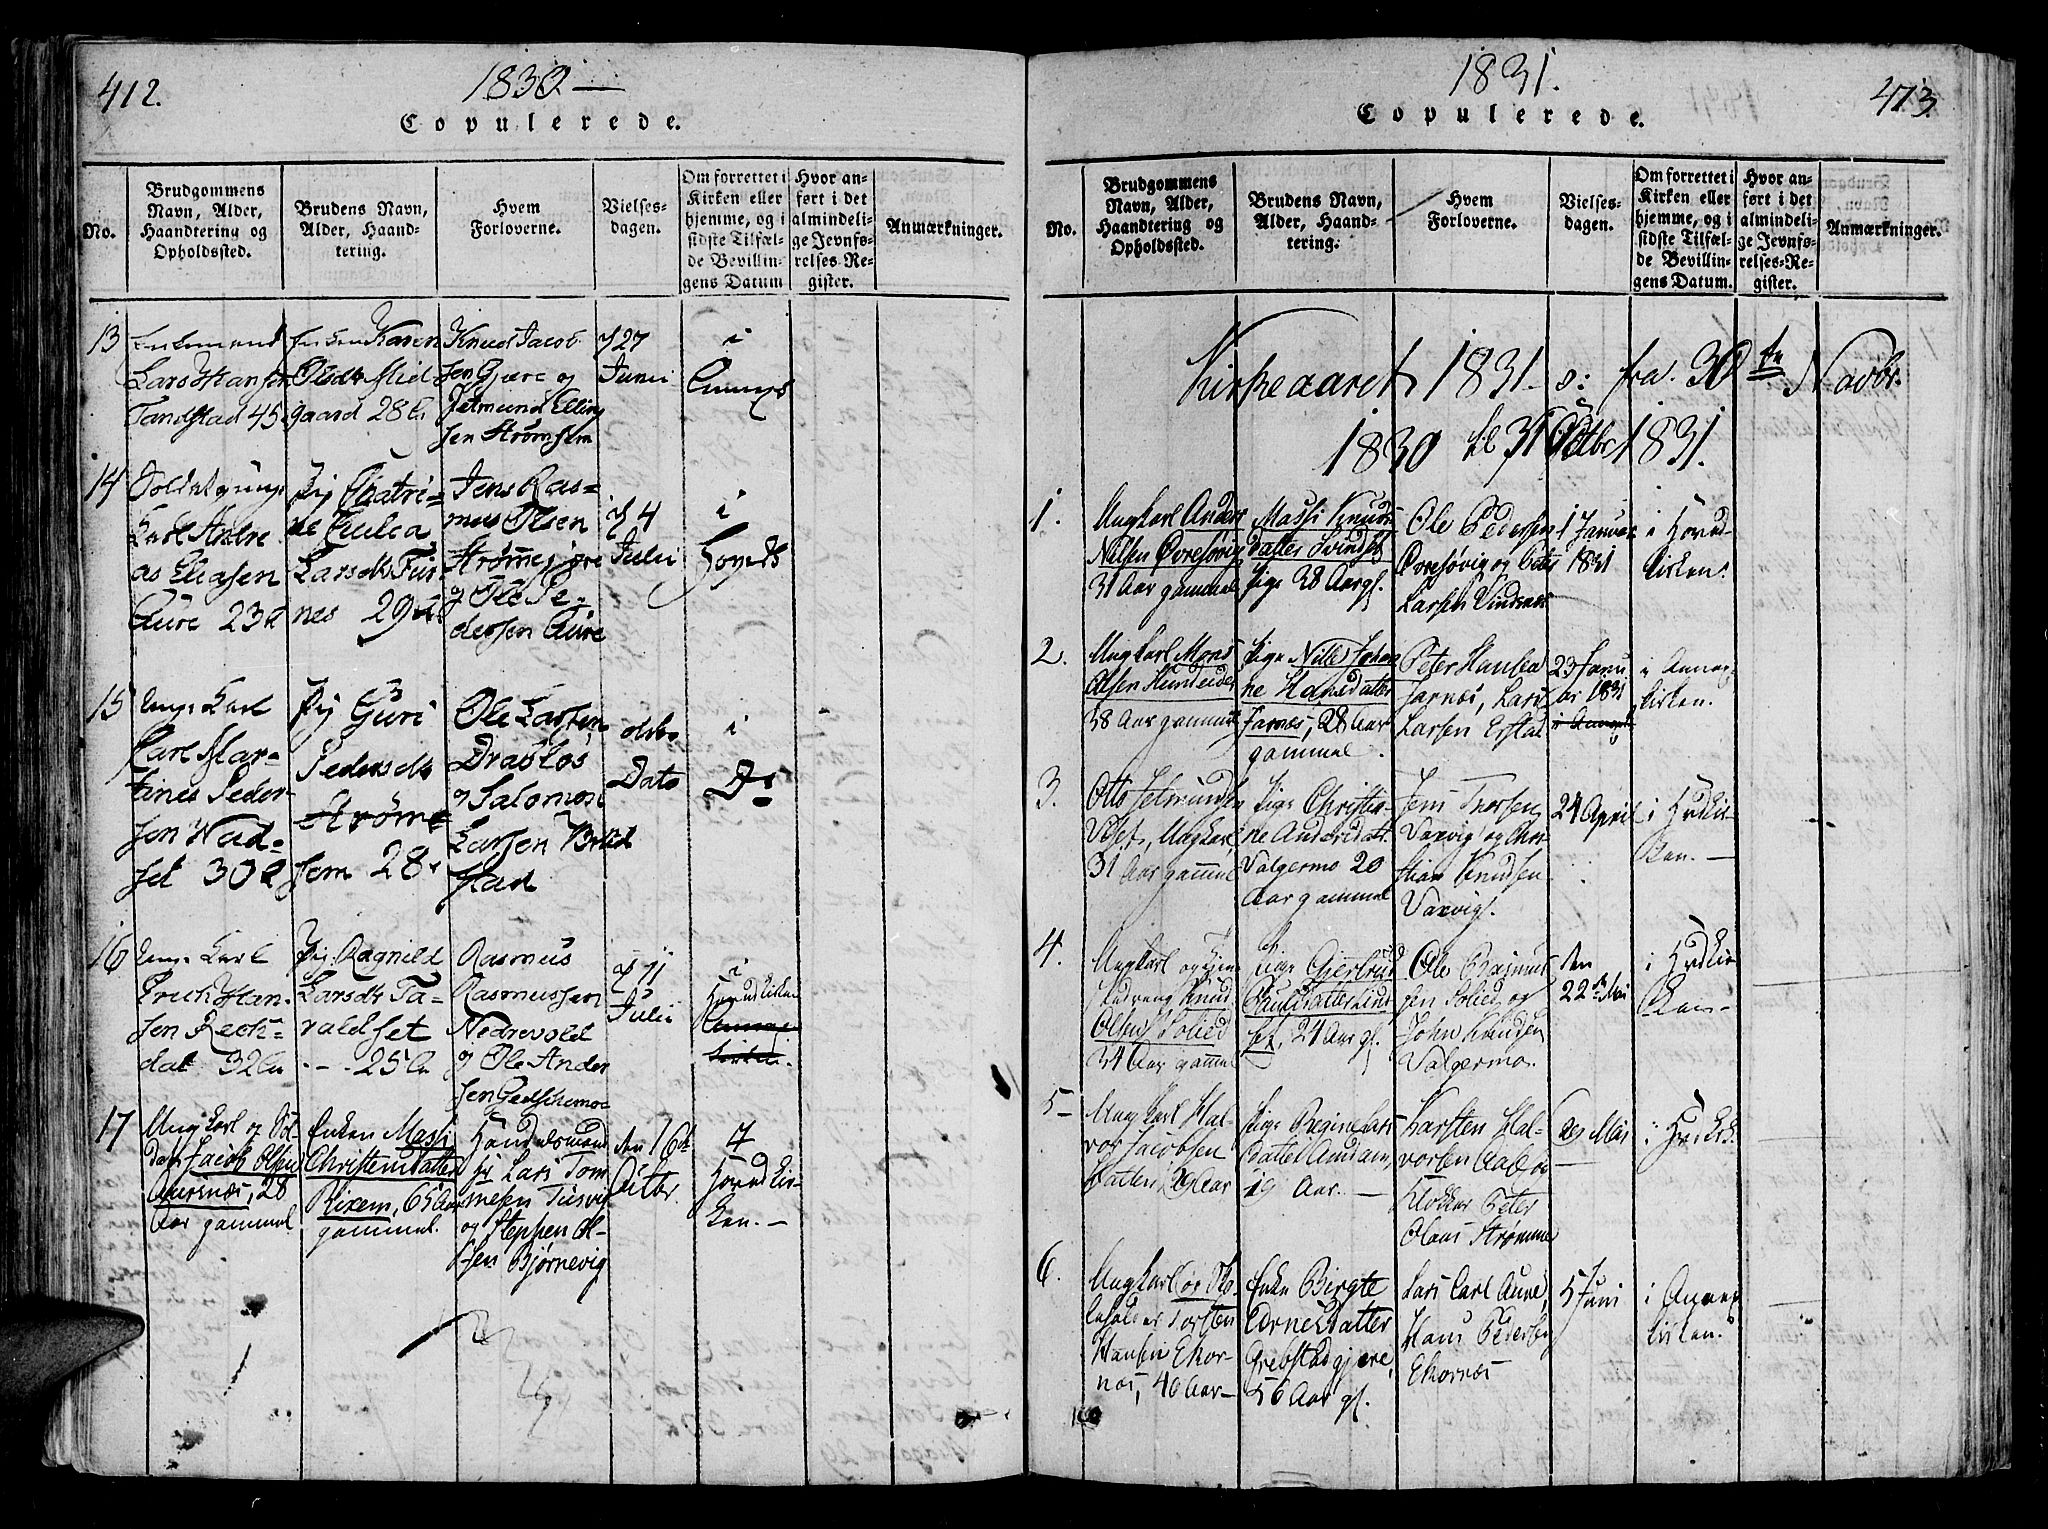 412.
1830 —
Copulerede.
No.
Brudgommens
Navn, Alder,
Haandtering og
Opholdssted.
Brudens Navn,
Alder, Haand-
tering.
Hvem
Forloverne.
Vielses-
dagen.
Om forrettet i
Kirken eller
hjemme, og i
sidste Tilfæl-
de Bevillin-
gens Datum
Hvor an-
ført i det
almindeli-
ge Jevnfø-
relses-Re-
gister.
Anmærkninger.
13
Enkemand
Lars Hansen
Tandstad 45
Enken Karen
Olsdtr Mid
gaard 28
Knud Jacob
sen Gjære og
Jetmund Elling
sen Strømshem
27
Junii
i
Annexs
14
Soldat ungk
Karl Andre
as Eliasen
Aure 23
Pig Chatri=
ne Tulea
Larsdtr Tus
nes 29
Jens Ras=
mus Olsen
Strømmegjære
og Ole Pe=
dersen Aure
4
Julii
i
Hovedk
15
Ung Karl
Karl Mar=
tines Peder=
sen Wad=
set 30
Pig Guri
Pedersdtr
Strøms
hem 28
Ole Larsen
Draskos
og Salomon
Larsen Brud
stad
Dato
i
Do
16
Ung Karl
Erich Han=
sen Rech=
dal 32
Pig Ragnild
Larsdtr Ta=
raldset
25
Rasmus
Rasmussen
Nedrevold
og Ole Ander
sen Gedschemoe
11
Julii
i
Hovedkirken
17
Ung Karl og Sol
dat Jacob Olsen
Aursnæs, 28
Aar gammel
Enken Massi
Christensdatter
Rixem, 65 Aar
gammel.
Handelsmand
Lars Tom
mesen Tusvig
og Steffen Ol=
sen Bjørnevig
den 16de
Octbr.
Hovedkir=
ken. —
1831.
413.
Copulerede.
No.
Brudgommens
Navn, Alder,
Haandtering og
Opholdssted.
Brudens Navn,
Alder, Haand-
tering.
Hvem
Forloverne.
Vielses-
dagen.
Om forrettet i
Kirken eller
hjemme, og i
sidste Tilfæl-
de Bevillin-
gens Datum.
Hvor an-
ført i det
almindeli-
ge Jevnfø-
relses-Re-
gister.
Anmærkninger.
Kirkeaaret 1831 o: fra 30te Novbr.
1830 til 31 Octbr 1831.
1.
Ungkarl Anders
Nilsen Øvresøvig
31 Aar gammel
Massi Knuds
datter Svindset
Pige 38 Aar gl.
Ole Pedersen
Øvresøvig og
Larsen Vindsnæs
1 Januar
1831
i Hoved-
kirken.
2.
Ungkarl Mons
Olsen Hundeidet
38 Aar gammel
Pige Nille Johan
ne Hansdatter
Jarnæs, 28 Aar
gammel.
Peter
Jarnæs, Lars
Larsen Erstad
23 Janu
ar 1831
i Annex
kirken.
3.
Otto Jetmundsen
Vilset, Ungkarl
31 Aar gammel
Pige Christia-
ne Andersdatt
Valgermo 20
Aar gammel
Jens Thorsen
Vaxvig og Chri-
stian Knudsen
Vaxvig.
24 April
i Hvdkir-
ken. —
4.
Ungkarl og
Knud
Olsen Solied
34 Aar gammel
Pige Gjertrud
Poulsdatter Lind
set, 24 Aar gl.
Ole Rasmus
sen Solied og
John Knudsen
Valgermo.
den
22de Mai
i Hvdkir
ken —
5
Ungkarl Hal-
vor Jacobsen
29 Aar
Pige Regine Lars
datter Aurdam,
19 Aar. —
Karsten Hal-
vorsen Aase og
Klokker Peter
Olaus Strømme
29 Mai
i Hvdk.
6.
Ungkarl
Torsten
Hansen Ekor-
næs, 40 Aar —
Enke Birgte
Ednesdatter
Grebstadgjære,
56 Aar gl.
Lars Carl Aure,
Hans Pedersen
Ekornæs
5 Juni
i Annex
kirken.